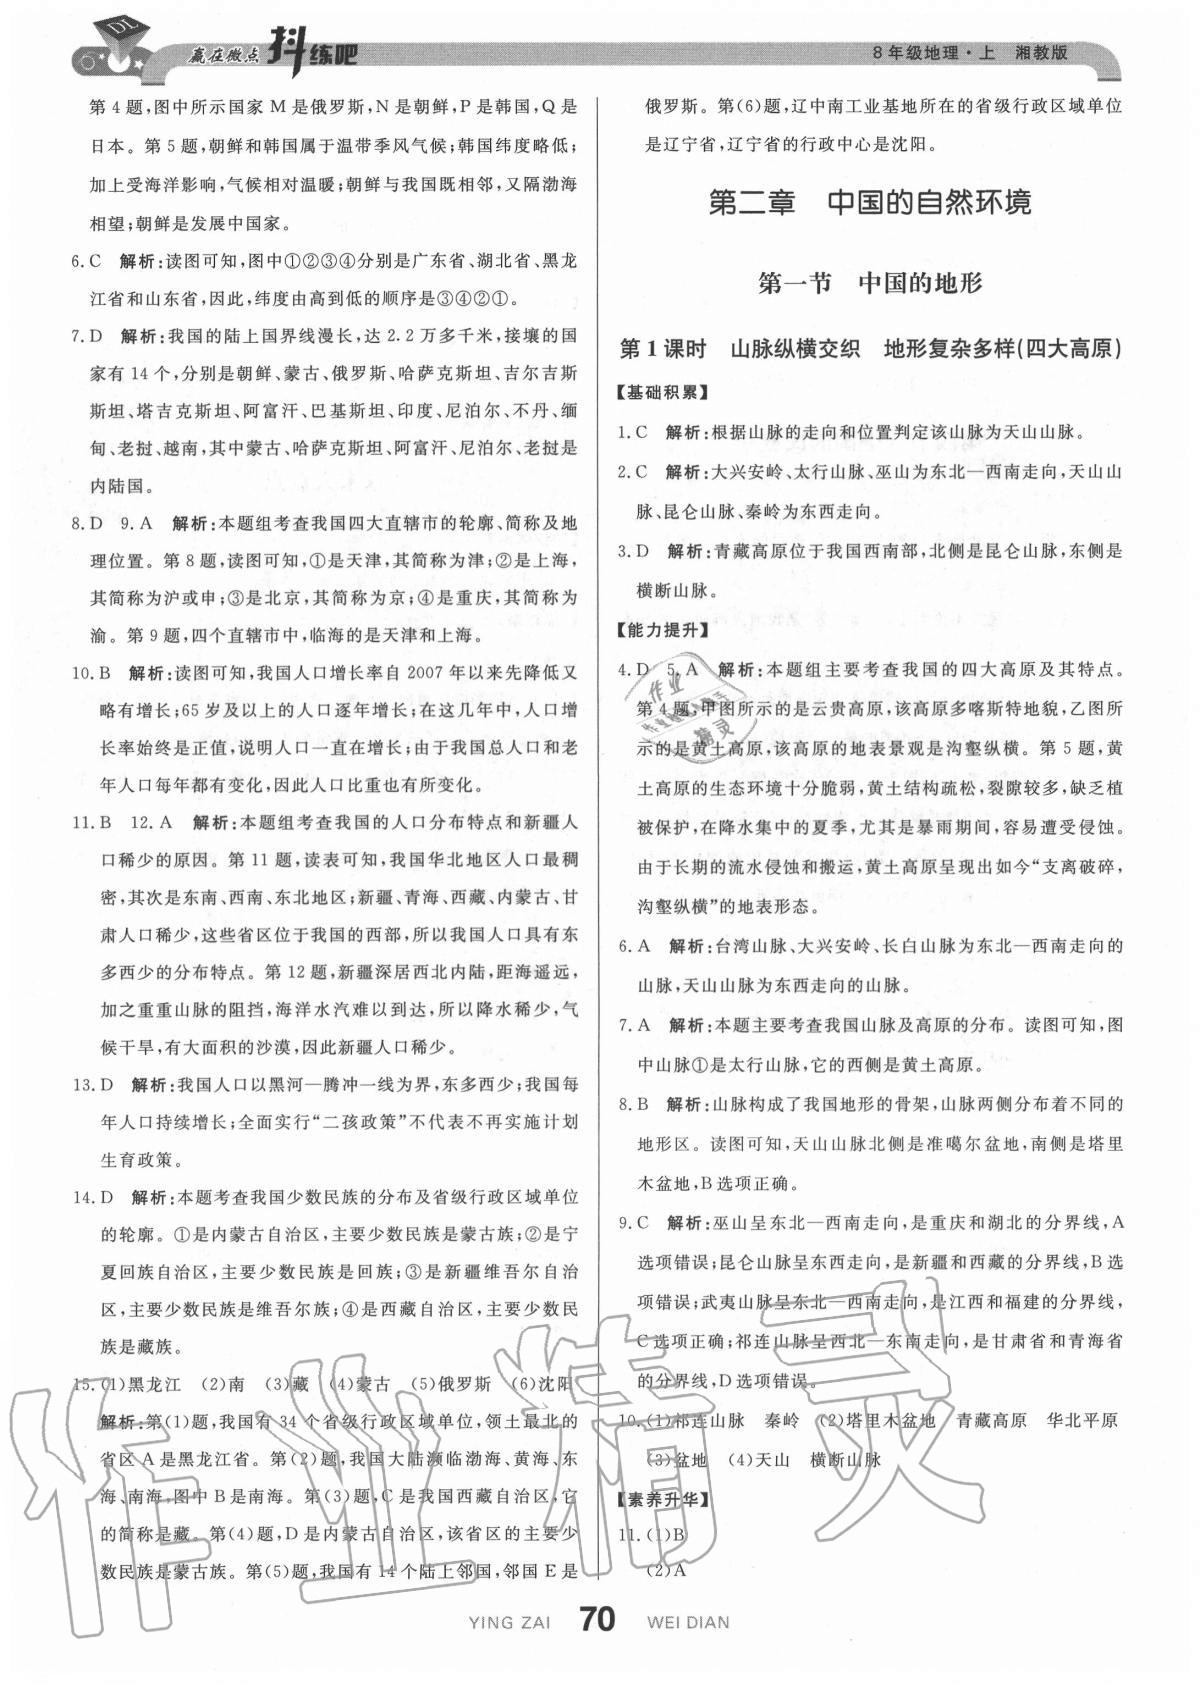 DL
赢在微点 抖练吧
8年级地理·上 湘教版
第4题,图中所示国家M是俄罗斯,N是朝鲜,P是韩国,Q是
日本。第5题,朝鲜和韩国属于温带季风气候;韩国纬度略低;
加上受海洋影响,气候相对温暖;朝鲜与我国既相邻,又隔渤海
相望;朝鲜是发展中国家。
6.C 解析:读图可知,图中①②③④分别是广东省、湖北省、黑龙
江省和山东省,因此,纬度由高到低的顺序是③④②①。
7.D 解析:我国的陆上国界线漫长,达2.2万多千米,接壤的国
家有14个,分别是朝鲜、蒙古、俄罗斯、哈萨克斯坦、吉尔吉斯
斯坦、塔吉克斯坦、阿富汗、巴基斯坦、印度、尼泊尔、不丹、缅
甸、老挝、越南,其中蒙古、哈萨克斯坦、阿富汗、尼泊尔、老挝是
内陆国。
8.D 9.A 解析:本题组考查我国四大直辖市的轮廓、简称及地
理位置。第8题,读图可知,①是天津,其简称为津;②是上海,
其简称为沪或申;③是北京,其简称为京;④是重庆,其简称为
渝。第9题,四个直辖市中,临海的是天津和上海。
10.B 解析:读图可知,我国人口增长率自2007年以来先降低又
略有增长;65岁及以上的人口逐年增长;在这几年中,人口增
长率始终是正值,说明人口一直在增长;由于我国总人口和老
年人口每年都有变化,因此人口比重也有所变化。
11.B 12.A 解析:本题组考查我国的人口分布特点和新疆人
口稀少的原因。第11题,读表可知,我国华北地区人口最稠
密,其次是东南、西南、东北地区;新疆、青海、西藏、内蒙古、甘
肃人口稀少,这些省区位于我国的西部,所以我国人口具有东
多西少的分布特点。第12题,新疆深居西北内陆,距海遥远,
加之重重山脉的阻挡,海洋水汽难以到达,所以降水稀少,气
候干旱,有大面积的沙漠,因此新疆人口稀少。
13.D 解析:我国人口以黑河—腾冲一线为界,东多西少;我国每
年人口持续增长;全面实行“二孩政策”不代表不再实施计划
生育政策。
14.D 解析:本题考查我国少数民族的分布及省级行政区域单位
的轮廓。①是内蒙古自治区,主要少数民族是蒙古族;②是宁
夏回族自治区,主要少数民族是回族;③是新疆维吾尔自治
区,主要少数民族是维吾尔族;④是西藏自治区,主要少数民
族是藏族。
15.(1)黑龙江 (2)南 (3)藏 (4)蒙古 (5)俄罗斯 (6)沈阳
解析:第(1)题,我国有34个省级行政区域单位,领土最北的
省区A是黑龙江省。第(2)题,我国大陆濒临渤海、黄海、东
海、南海,图中B是南海。第(3)题,C是我国西藏自治区,它
的简称是藏。第(4)题,D是内蒙古自治区,该省区的主要少
数民族是蒙古族。第(5)题,我国有14个陆上邻国,邻国E是
俄罗斯。第(6)题,辽中南工业基地所在的省级行政区域单位
是辽宁省,辽宁省的行政中心是沈阳。
第二章 中国的自然环境
第一节 中国的地形
第1课时 山脉纵横交织 地形复杂多样(四大高原)
【基础积累】
1.C 解析:根据山脉的走向和位置判定该山脉为天山山脉。
2.C 解析:大兴安岭、太行山脉、巫山为东北—西南走向,天山山
脉、昆仑山脉、秦岭为东西走向。
3.D 解析:青藏高原位于我国西南部,北侧是昆仑山脉,东侧是
横断山脉。
【能力提升】
4.D 5.A 解析:本题组主要考查我国的四大高原及其特点。
第4题,甲图所示的是云贵高原,该高原多喀斯特地貌,乙图所
示的是黄土高原,该高原的地表景观是沟壑纵横。第5题,黄
土高原的生态环境十分脆弱,黄土结构疏松,裂隙较多,缺乏植
被保护,在降水集中的夏季,尤其是暴雨期间,容易遭受侵蚀。
由于长期的流水侵蚀和搬运,黄土高原呈现出如今“支离破碎,
沟壑纵横”的地表形态。
6.A 解析:台湾山脉、大兴安岭、长白山脉为东北—西南走向的
山脉,天山山脉为东西走向的山脉。
7.A 解析:本题主要考查我国山脉及高原的分布。读图可知,图
中山脉①是太行山脉,它的西侧是黄土高原。
8.B 解析:山脉构成了我国地形的骨架,山脉两侧分布着不同的
地形区。读图可知,天山山脉北侧是准噶尔盆地,南侧是塔里
木盆地,B选项正确。
9.C 解析:巫山呈东北—西南走向,是重庆和湖北的分界线,A
选项错误;昆仑山脉呈东西走向,是新疆和西藏的分界线,B选
项错误;武夷山脉呈东北—西南走向,是江西和福建的分界线,
C选项正确;祁连山脉呈西北—东南走向,是甘肃省和青海省
的分界线,D选项错误。
10.(1)祁连山脉 秦岭 (2)塔里木盆地 青藏高原 华北平原
(3)盆地 (4)天山 横断山脉
【素养升华】
11.(1)B
(2)A
作业精灵
YING ZAI 70 WEI DIAN